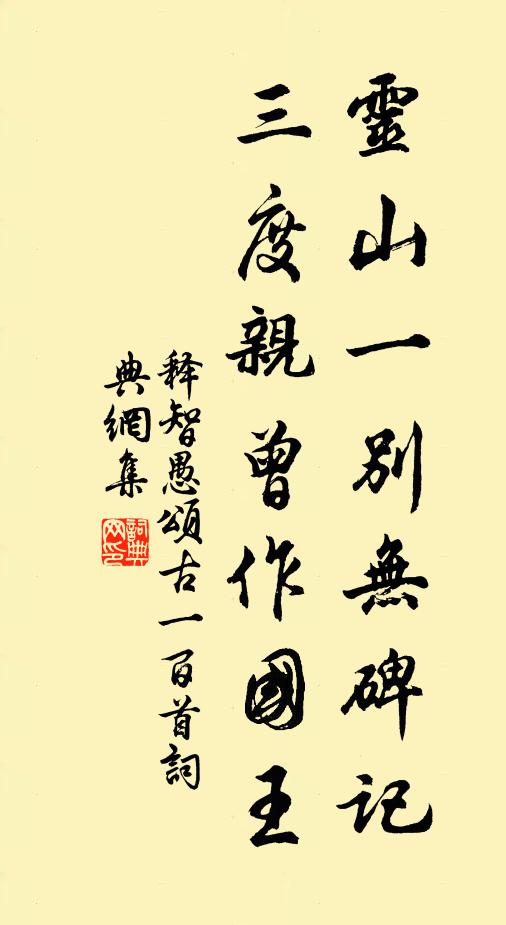 靈山一別無碑記
三度親曾作國王
释智愚頌古一百首詞
典網集
詞典網印